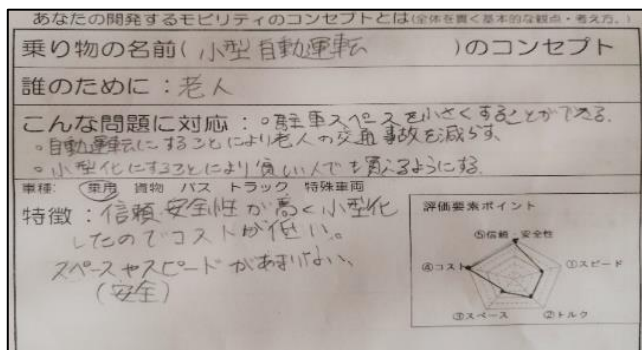 あなたの開発するモビリティのコンセプトとは(全体を貫く基本的な観点・考え方。)
乗り物の名前(小型自動運転 )のコンセプト
誰のために:老人
こんな問題に対応:○駐車スペースを小さくすることができる。
○自動運転にすることにより老人の交通事故を減らす。
○小型化にすることにより貧しい人でも買えるようにする。
車種: 乗用 貨物 バス トラック 特殊車両
特徴:信頼、安全性が高く小型化
したのでコストが低い。
スペースやスピードがあまりない、
(安全)
評価要素ポイント
⑤信頼・安全性
④コスト
①スピード
③スペース
②トルク